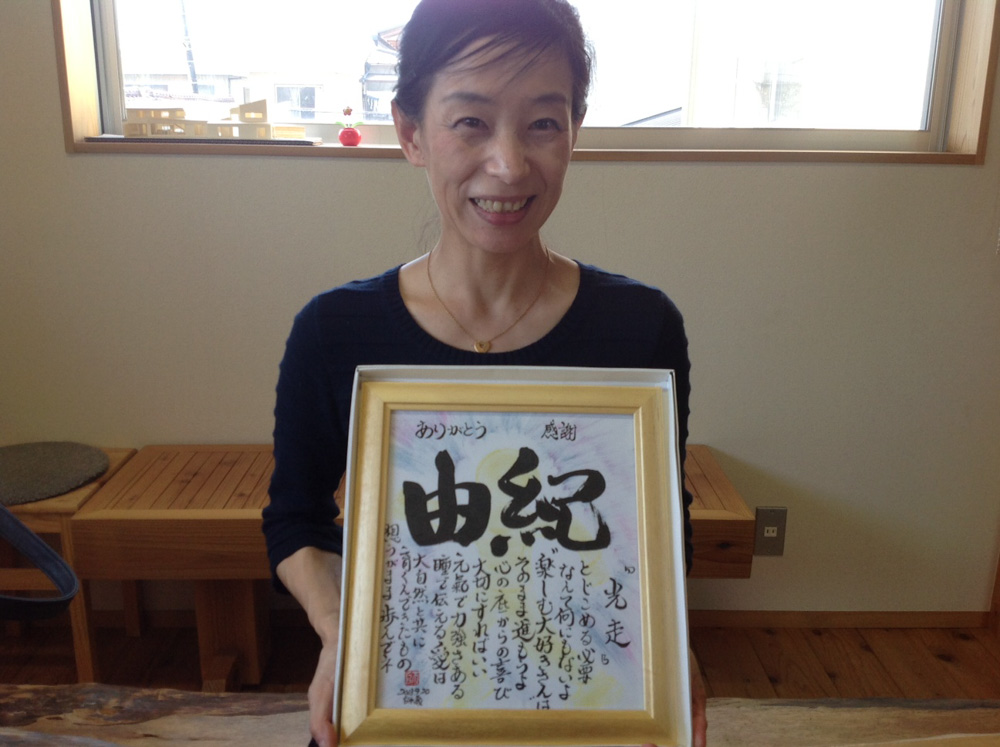 ありがとう 感謝
由紀
“光走”
とじこめる必要
なんて何にもないよ
楽しむ大好きさんは
そのまま進もうよ
心の底からの喜び
大切にすればいい
元氣で力強さある
瞳で伝える毎日
大自然と共に
育くんできたもの
想うがまま歩んでネ